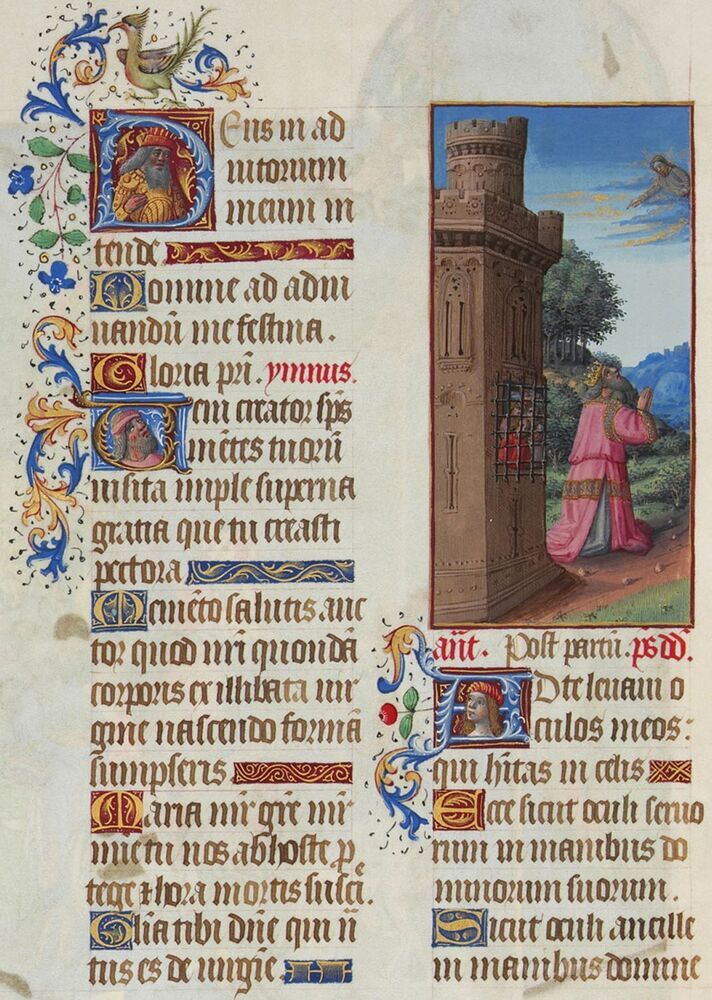 Deus in ad
iutorium
meum in
tende.
Domine ad adiu
uandū me festina.
Gloria pri. ymnus.
Ueni creator sps
mētes tuorū
uisita imple superna
gratia que tu creasti
pectora
Memēto salutis auc
tor quod nri quondā
corporis ex illibata uir
gine nascendo formā
sumpseris
Maria mr gre mr
mie tu nos ab hoste p
tege & hora mortis suscē.
Glia tibi dne qui n
tus es de uirgie
ant. Post partū. ps dd.
Ad te leuaui o
culos meos:
qui hītas in celis
Ecce sicut oculi seruo
rum in manibus do
minorum suorum.
Sicut oculi ancille
in manibus domine